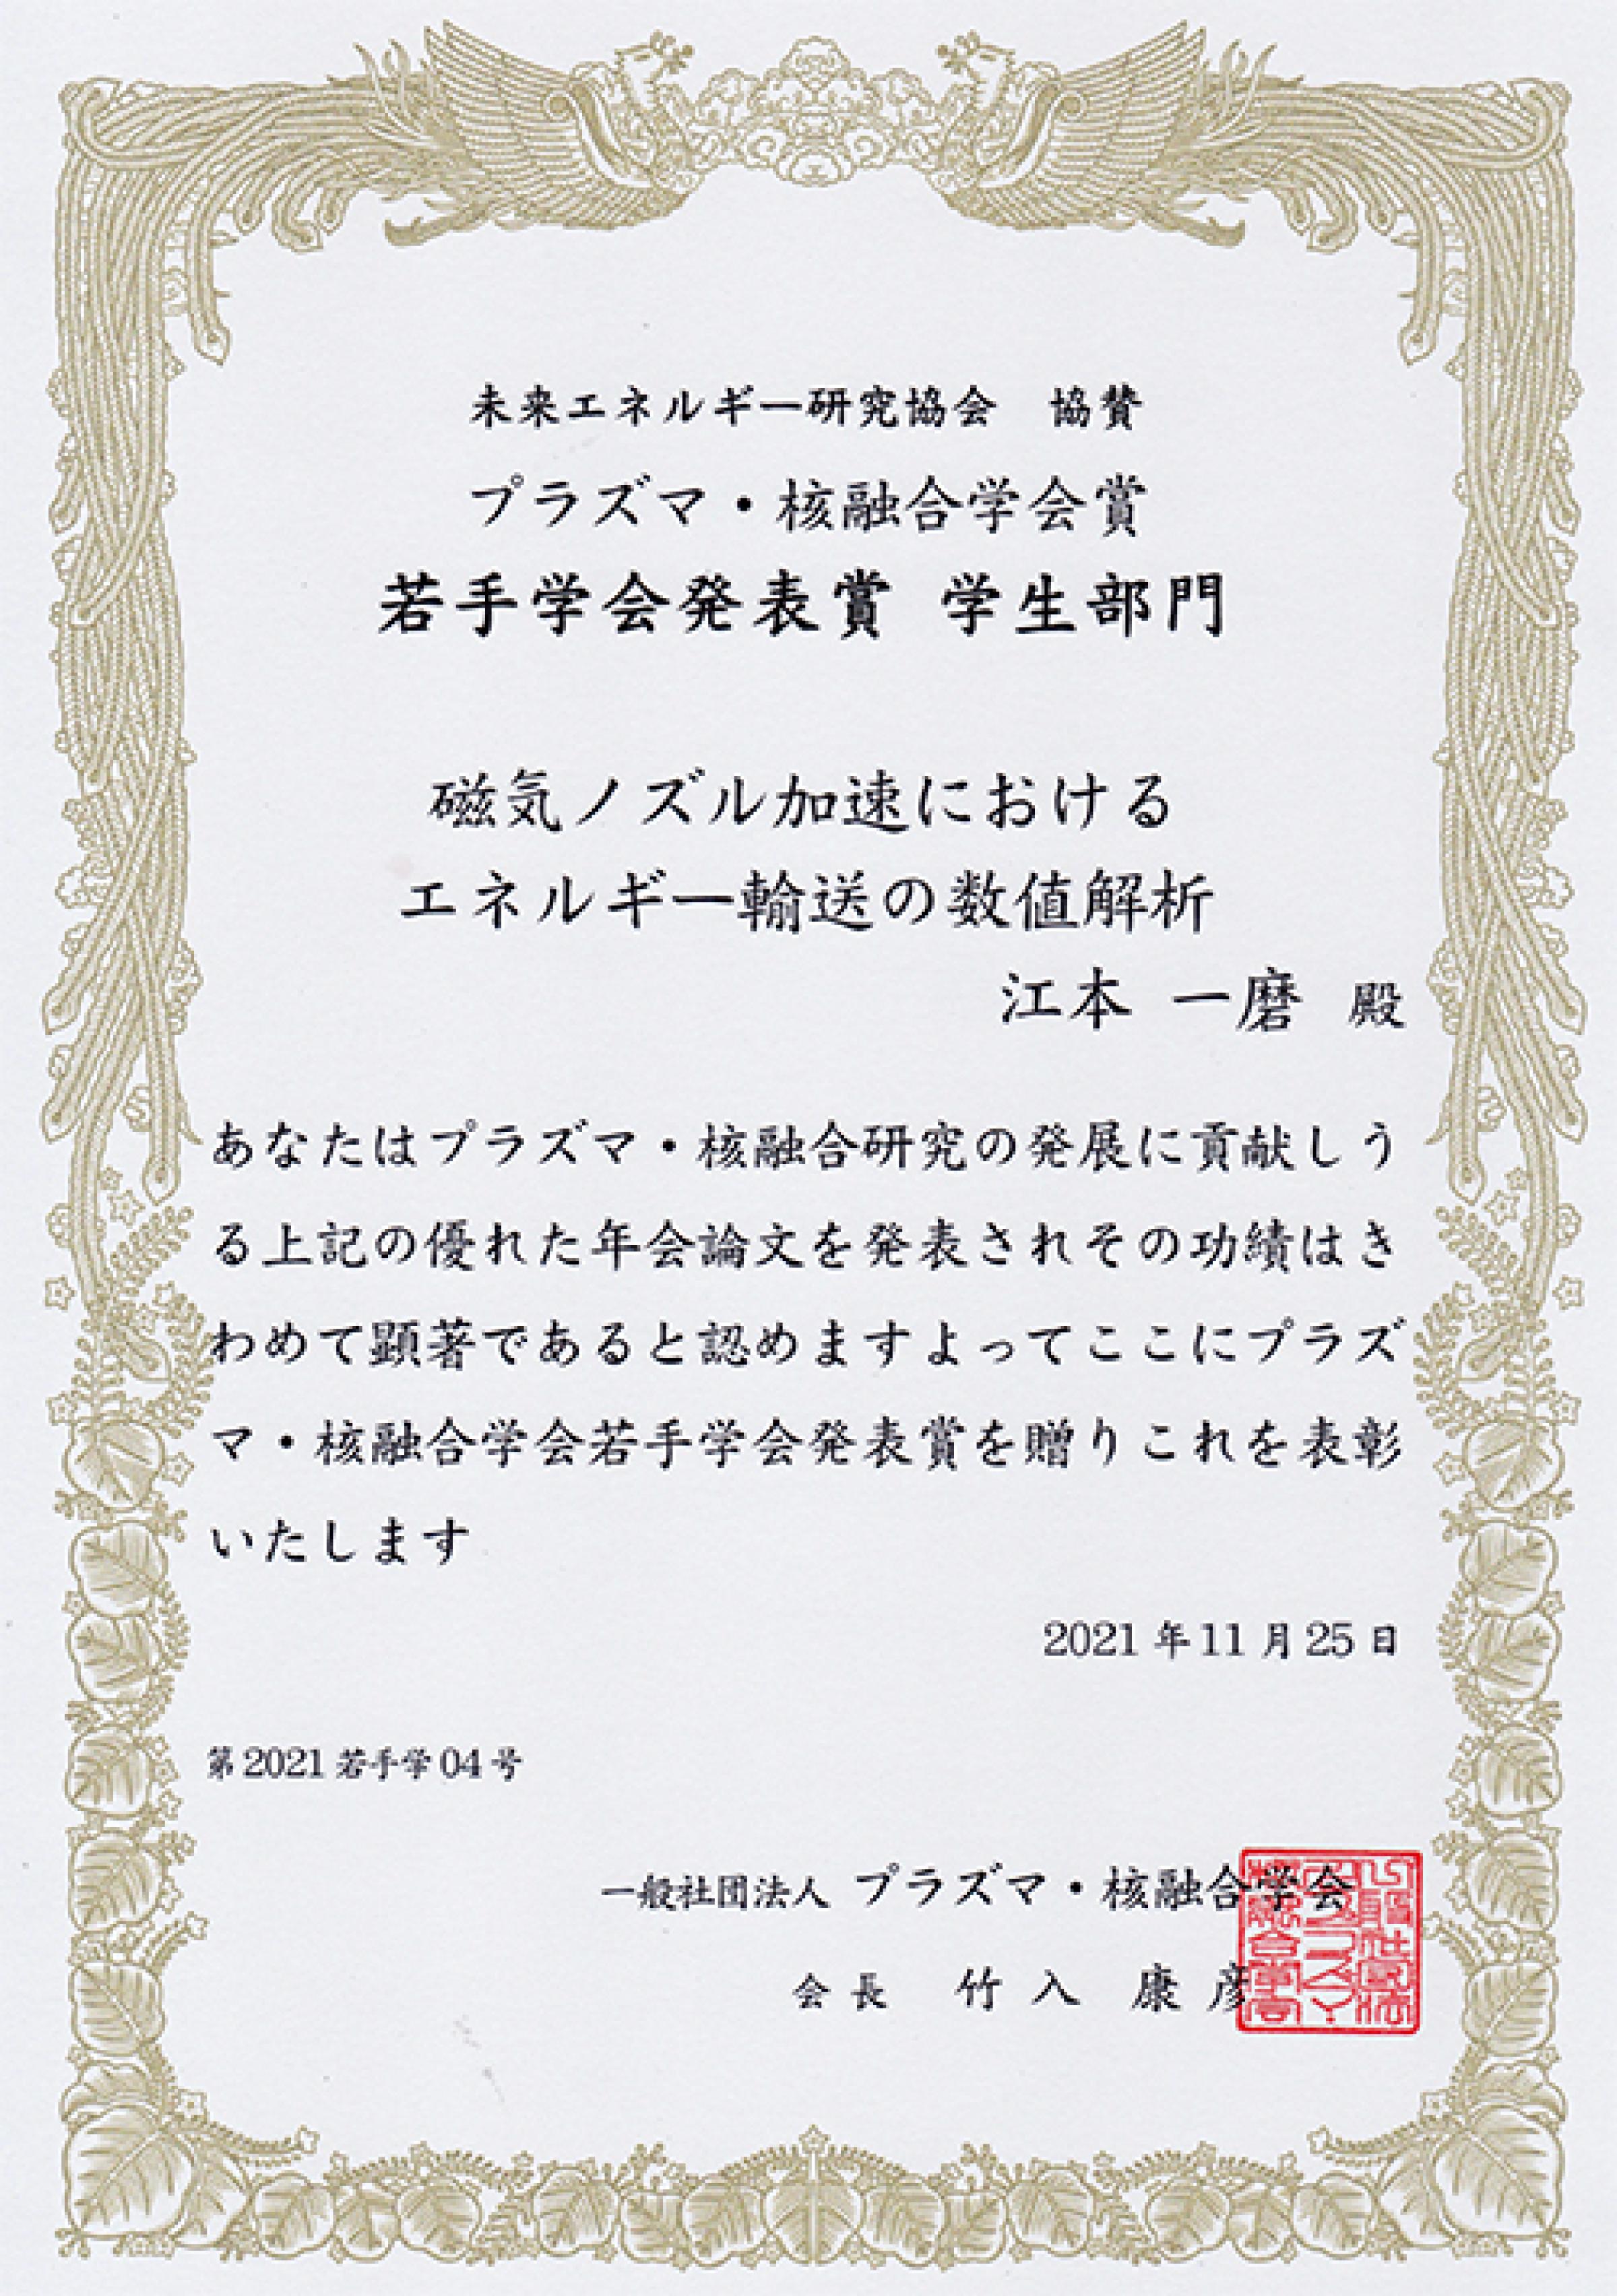 未来エネルギー研究協会　協賛
プラズマ・核融合学会賞
若手学会発表賞 学生部門
磁気ノズル加速における
エネルギー輸送の数値解析
江本 一磨 殿
あなたはプラズマ・核融合研究の発展に貢献しう
る上記の優れた年会論文を発表されその功績はき
わめて顕著であると認めますよってここにプラズ
マ・核融合学会若手学会発表賞を贈りこれを表彰
いたします
2021 年 11 月 25 日
第 2021 若手学 04 号
一般社団法人 プラズマ・核融合学会
会長　竹入 康彦